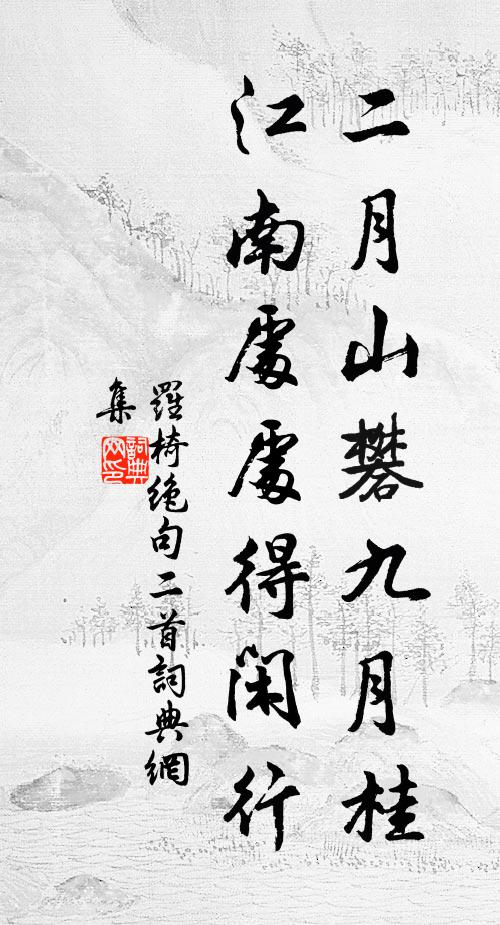 二月山礬九月桂
江南處處得閑行
羅椅絶句二首詞典網
集
詞典网印